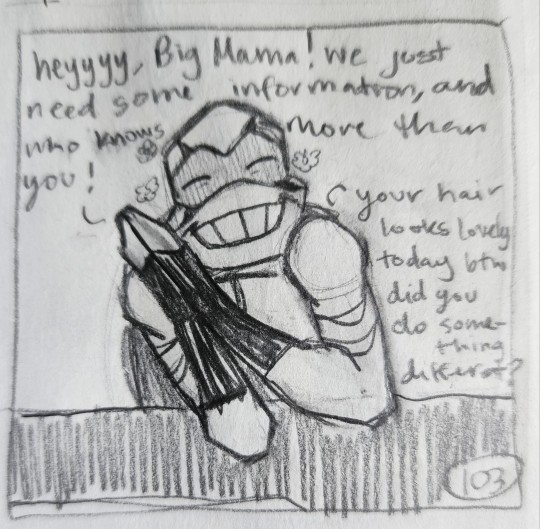 heyyyy, Big Mama! we just
need some information, and
who knows more than
you!
your hair
looks lovely
today btw
did you
do some-
thing
different?
103